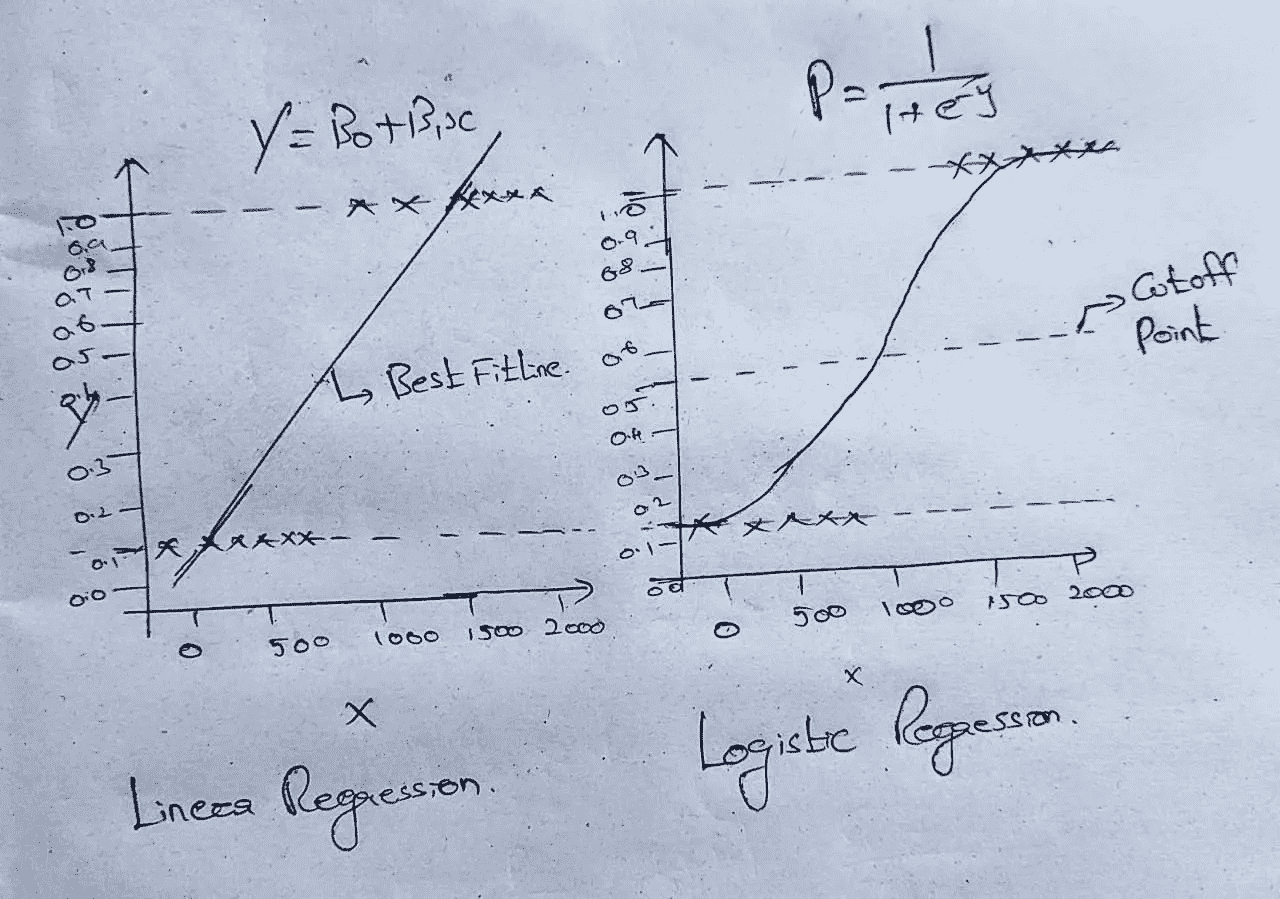 Y = B0 + B1x
1.0
0.9
0.8
0.7
0.6
0.5
0.4
Y
0.3
0.2
0.1
0.0
Best Fit Line.
0 500 1000 1500 2000
x
Linear Regression.
P = 1 / 1 + e^-y
1.0
0.9
0.8
0.7
0.6
0.5
0.4
0.3
0.2
0.1
0.0
Cutoff
Point
0 500 1000 1500 2000
x
Logistic Regression.